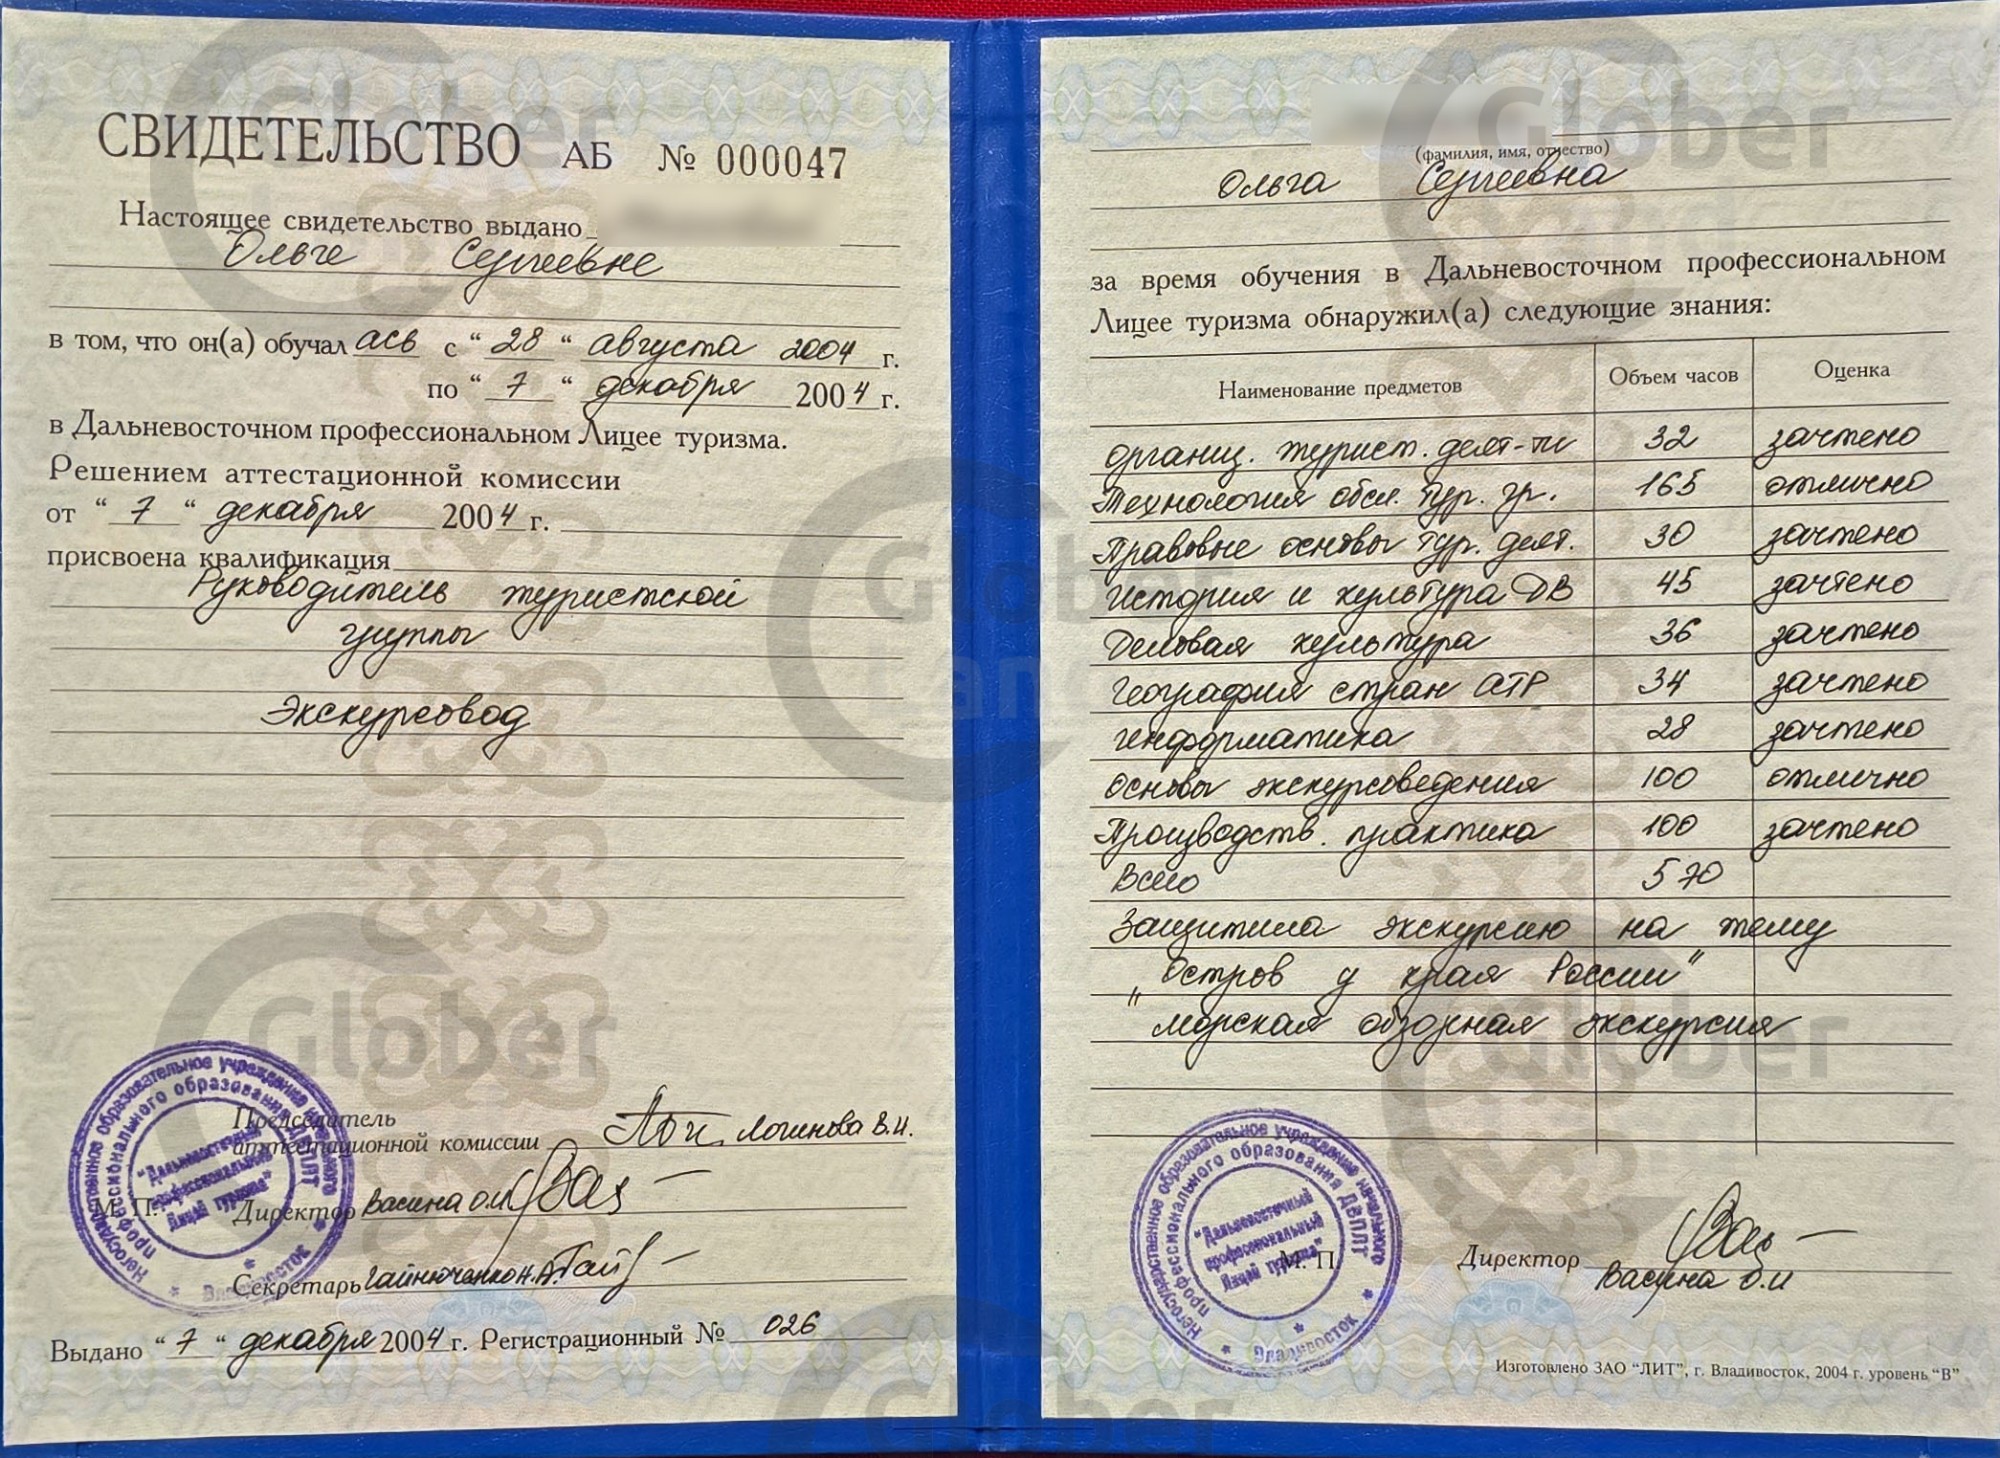 СВИДЕТЕЛЬСТВО АБ № 000047
Настоящее свидетельство выдано
Ольге Сергеевне
в том, что он(а) обучалась с "28" августа 2004 г.
по "7" декабря 2004 г.
в Дальневосточном профессиональном Лицее туризма.
Решением аттестационной комиссии
от "7" декабря 2004 г.
присвоена квалификация
Руководитель туристской
группы
Экскурсовод
Председатель
аттестационной комиссии Логинова В.И.
М. П. Директор Васина О.И
Секретарь Гайнюченко Н.А.
Выдано "7" декабря 2004 г. Регистрационный № 026
Негосударственное образовательное учреждение начального
профессионального образования ДВПЛТ
"Дальневосточный
профессиональный
Лицей туризма"
Владивосток
(фамилия, имя, отчество)
Ольга Сергеевна
за время обучения в Дальневосточном профессиональном
Лицее туризма обнаружил(а) следующие знания:
Наименование предметов Объем часов Оценка
Организ. турист. деят-ти 32 зачтено
Технология обсл. тур. гр. 165 отлично
Правовые основы тур. деят. 30 зачтено
История и культура ДВ 45 зачтено
Деловая культура 36 зачтено
География стран АТР 34 зачтено
Информатика 28 зачтено
Основы экскурсоведения 100 отлично
Производств. практика 100 зачтено
Всего 570
Защитила экскурсию на тему
"Остров у края России"
морская обзорная экскурсия
Негосударственное образовательное учреждение начального
профессионального образования ДВПЛТ
"Дальневосточный
профессиональный
Лицей туризма"
Владивосток
М. П. Директор
Васина О.И
Изготовлено ЗАО "ЛИТ", г. Владивосток, 2004 г. уровень "В"
Glober
Glober
Glober
Glober
Glober
Glober